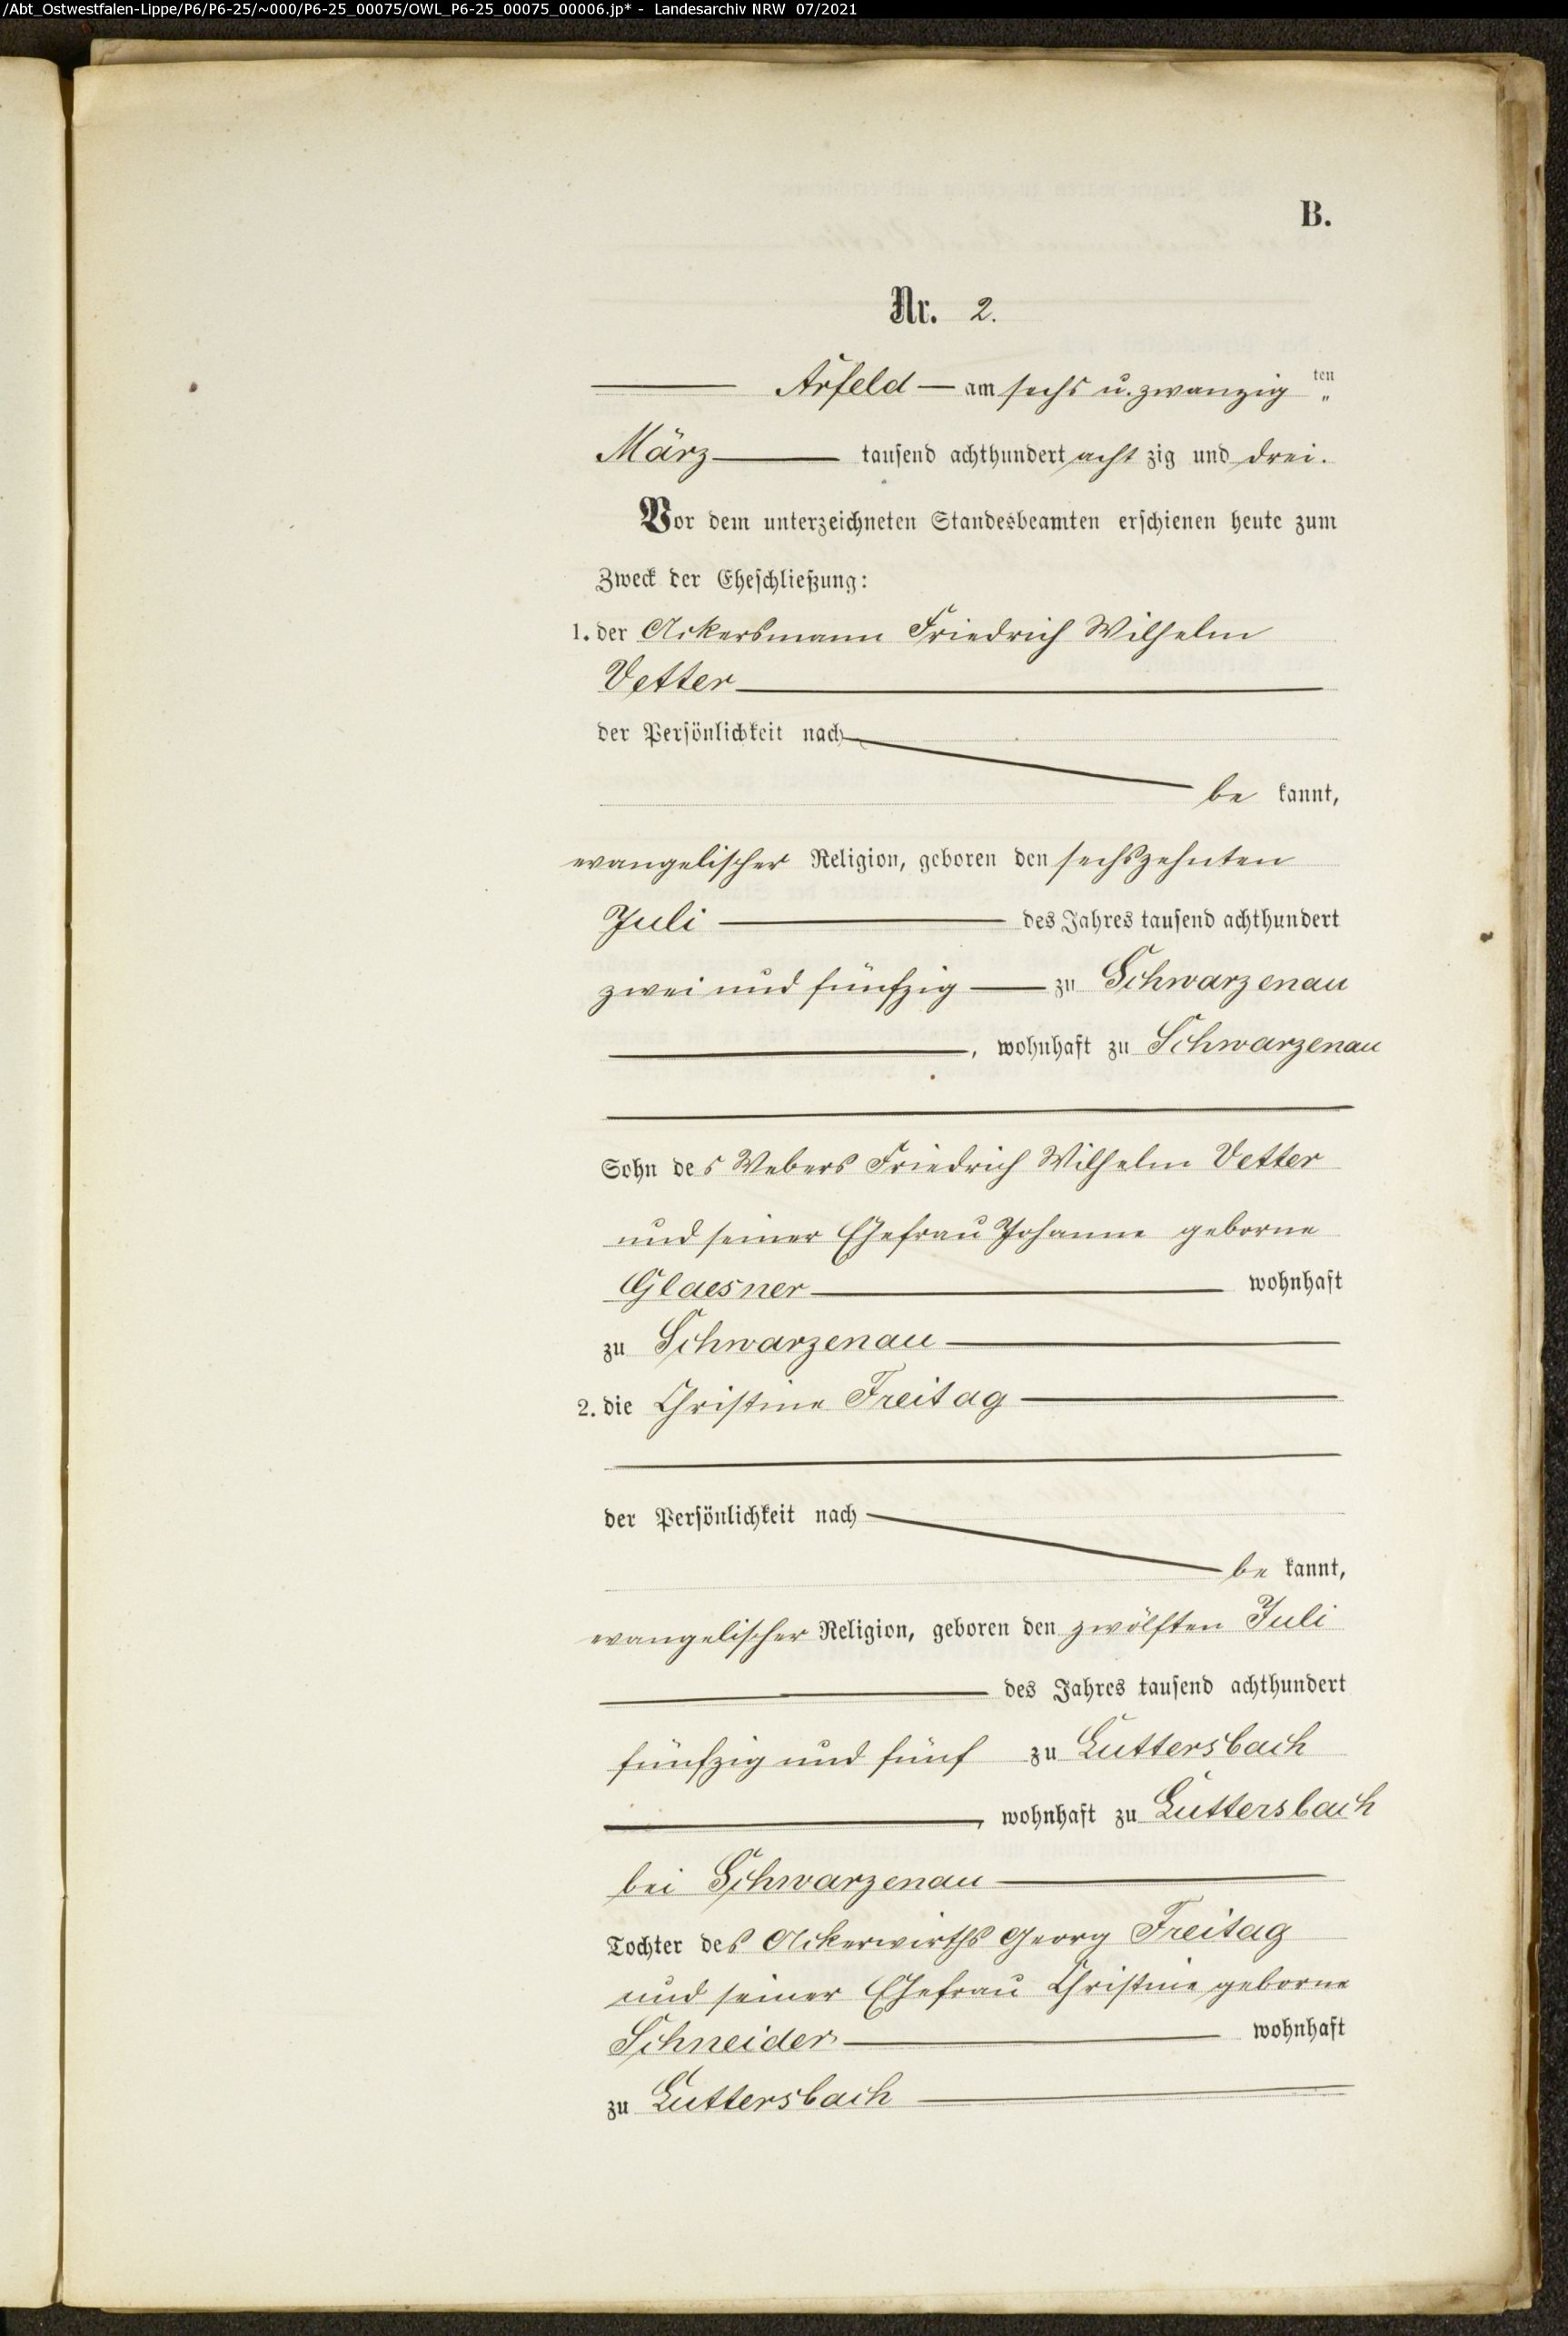 /Abt_Ostwestfalen-Lippe/P6/P6-25/~000/P6-25_00075/OWL_P6-25_00075_00006.jp* - Landesarchiv NRW 07/2021
B.
Nr. 2.
Arfeld — am sechs u. zwanzig ten
März — tausend achthundert acht zig und drei.
Vor dem unterzeichneten Standesbeamten erschienen heute zum
Zweck der Eheschließung:
1. der Ackersmann Friedrich Wilhelm
Vetter
der Persönlichkeit nach
be kannt,
evangelischer Religion, geboren den sechszehnten
Juli — des Jahres tausend achthundert
zwei und fünfzig — zu Schwarzenau
, wohnhaft zu Schwarzenau
Sohn des Webers Friedrich Wilhelm Vetter
und seiner Ehefrau Johanne geborne
Glaesner — wohnhaft
zu Schwarzenau
2. die Christine Freitag
der Persönlichkeit nach
be kannt,
evangelischer Religion, geboren den zwölften Juli
des Jahres tausend achthundert
fünfzig und fünf zu Luttersbach
, wohnhaft zu Luttersbach
bei Schwarzenau
Tochter des Ackerwirths Georg Freitag
und seiner Ehefrau Christine geborne
Schneider — wohnhaft
zu Luttersbach